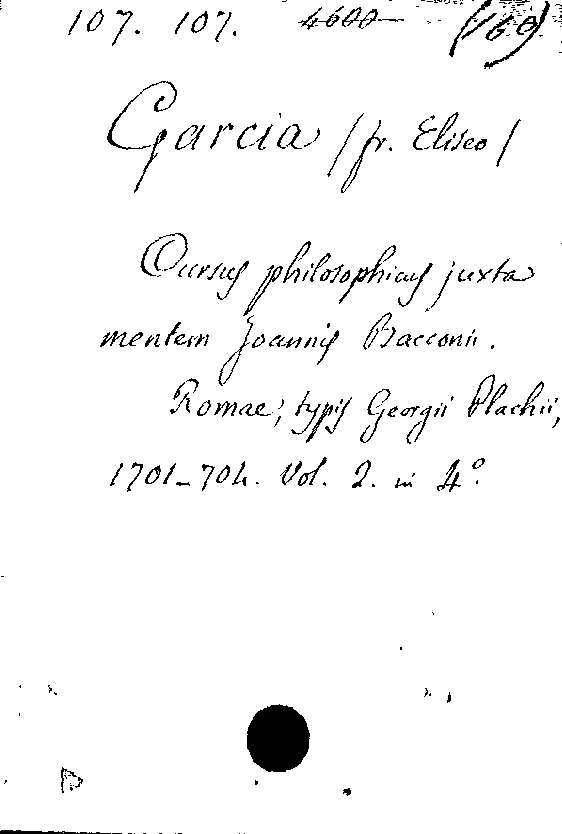 107. 107. 4600 (160)
Garcia (fr. Eliseo)
Cursus philosophicus juxta
mentem Joannis Bacconii.
Romae, typis Georgii Plachii,
1701-704. Vol. 2. in 4°.